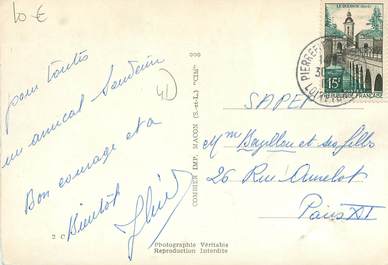 10 €
pour toutes
un amical Souvenir
Bon courage et a
Bientôt
41
COMBIER IMP. MACON (S.-et-L.) "CIM"
Photographie Véritable
Reproduction Interdite
LE QUESNOY
15F
FRANÇAISE
PIERREF
SAPEF
Mme Bazillon et ses filles
26 Rue Amelot
Paris XI